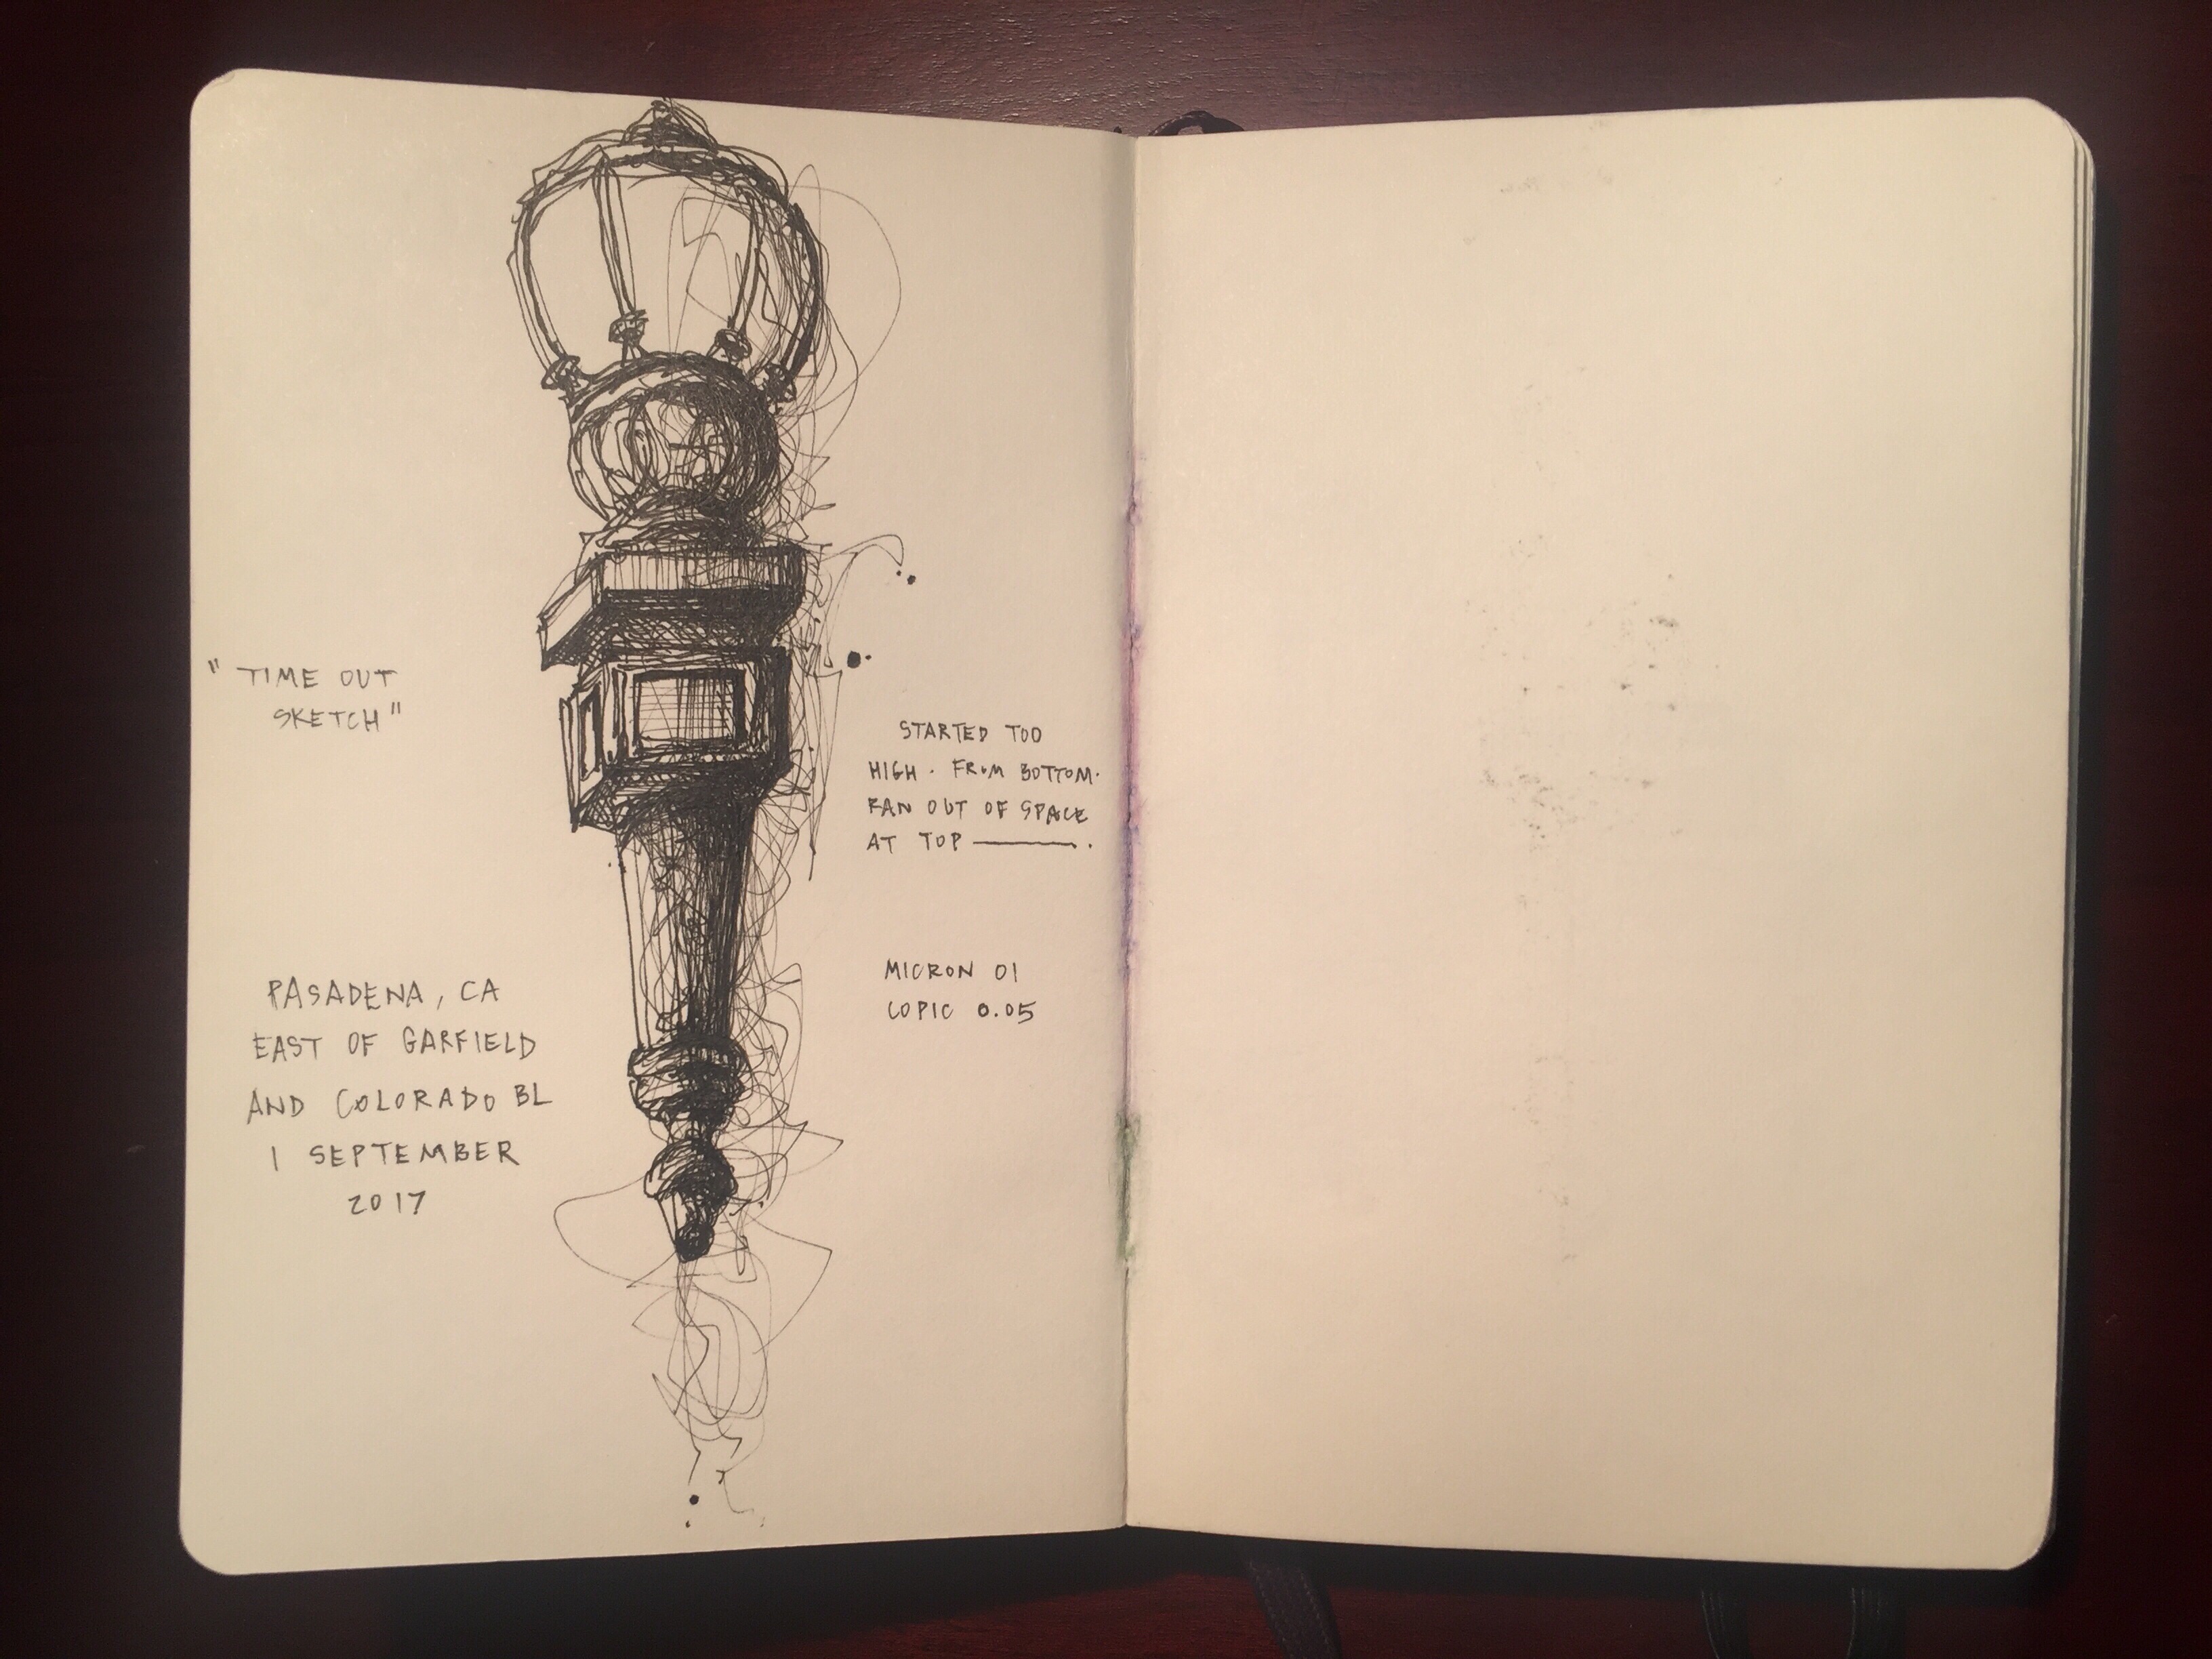 " TIME OUT
SKETCH "
STARTED TOO
HIGH. FROM BOTTOM.
RAN OUT OF SPACE
AT TOP ———.
PASADENA, CA
EAST OF GARFIELD
AND COLORADO BL
1 SEPTEMBER
2017
MICRON 01
COPIC 0.05